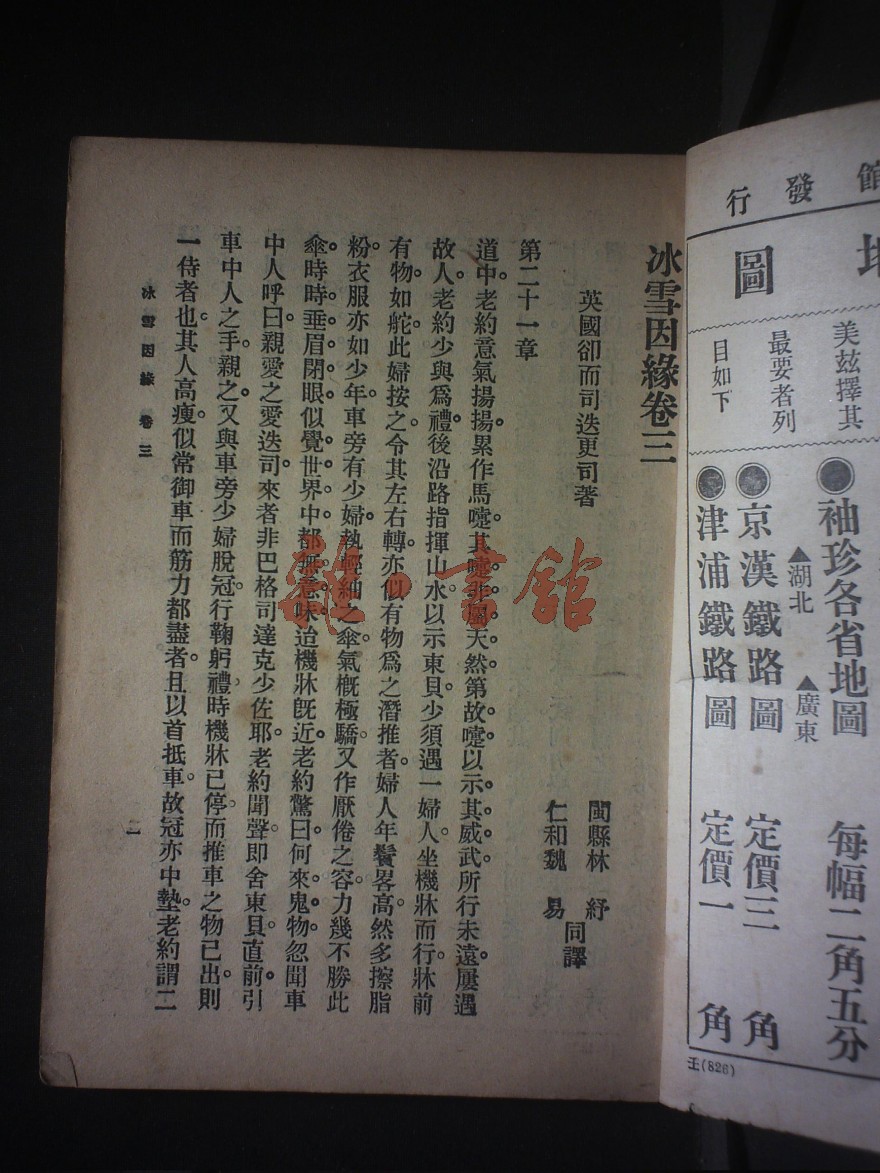 冰雪因緣卷三
英國卻而司迭更司著
閩縣林紓
仁和魏易
同譯
第二十一章
道中。老約意氣揚揚。累作馬嚏。其嚏非屬天然。第故嚏以示其威武。所行未遠。屢遇
故人。老約少與爲禮。後沿路指揮山水。以示東貝。少須遇一婦人。坐機牀而行。牀前
有物如舵。此婦按之。令其左右轉。亦似有物爲之潛推者。婦人年鬢畧高。然多擦脂
粉。衣服亦如少年。車旁有少婦。執輕紬之傘。氣概極驕。又作厭倦之容。力幾不勝此
傘。時時垂眉閉眼。似覺世界中都無意味。迨機牀既近。老約驚曰。何來鬼物。忽聞車
中人呼曰。親愛之愛迭司。來者非巴格司達克少佐耶。老約聞聲。即舍東貝。直前引
車中人之手。親之。又與車旁少婦脫冠。行鞠躬禮。時機牀已停。而推車之物已出。則
一侍者也。其人高瘦。似常御車而筋力都盡者。且以首抵車。故冠亦中墊。老約謂二
冰雪因緣 卷三
二
館發行
地圖
美玆擇其
最要者列
目如下
●袖珍各省地圖 每幅二角五分
▲湖北 ▲廣東
●京漢鐵路圖 定價三角
●津浦鐵路圖 定價一角
壬(826)
雜·書館